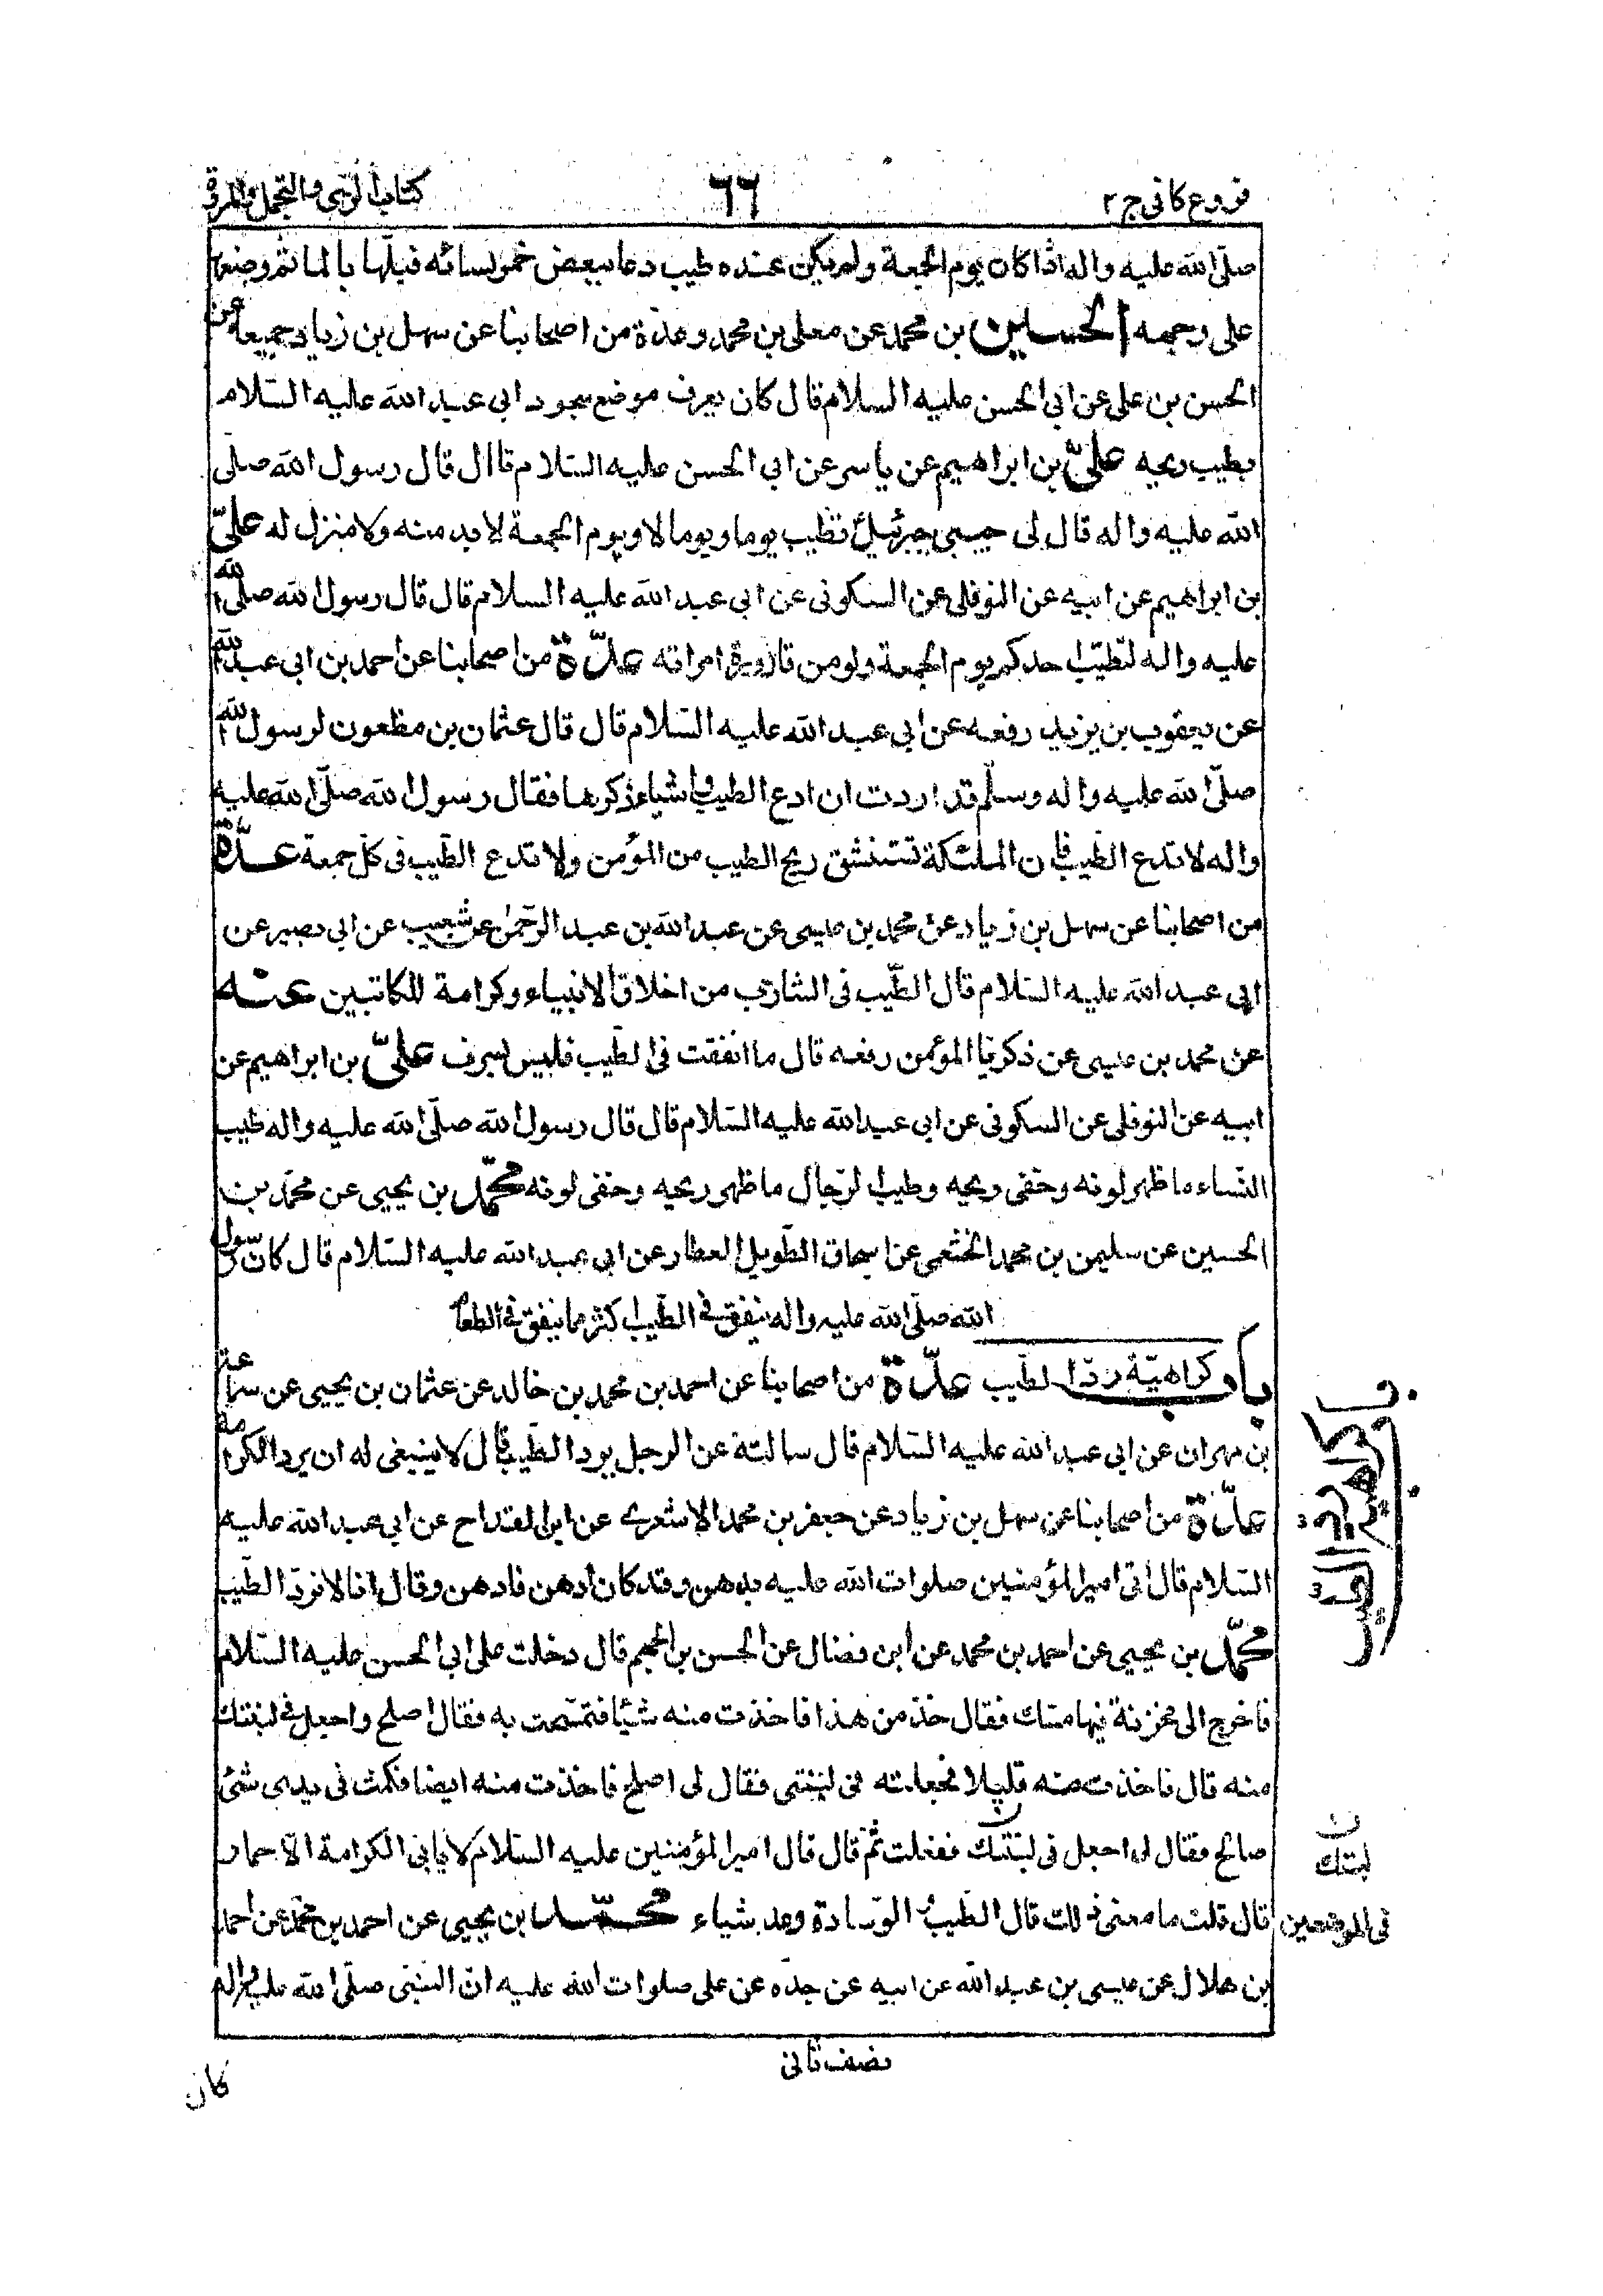 فروع كافی ج ۲
٦٦
كتاب الزی والتجمل والمروة
صلّی الله علیه واله اذا كان یوم الجمعة ولم یكن عنده طیب دعا ببعض خمر نسائه فبلّها بالماء ثم وضعها
علی وجهه الحسین بن محمد عن معلی بن محمد وعدة من اصحابنا عن سهل بن زیاد جمیعا عن
الحسن بن علی عن ابی الحسن علیه السلام قال كان یعرف موضع سجود ابی عبد الله علیه السّلام
بطیب ریحه علیّ بن ابراهیم عن یاسر عن ابی الحسن علیه السّلام قال قال رسول الله صلّی
الله علیه واله قال لی حبیبی جبرئیل تطیب یوما ویوما لا ویوم الجمعة لا بد منه ولا منزل له علیّ
بن ابراهیم عن ابیه عن النوفلی عن السكونی عن ابی عبد الله علیه السلام قال قال رسول الله صلّی الله
علیه واله لتطیّب احدكم یوم الجمعة ولو من قارورة امراته عدّة من اصحابنا عن احمد بن ابی عبد الله
عن یعقوب بن یزید رفعه عن ابی عبد الله علیه السّلام قال قال عثمان بن مظعون لرسول الله
صلّی الله علیه واله وسلّم قد اردت ان ادع الطیب واشیاء ذكرها فقال رسول الله صلّی الله علیه
واله لا تدع الطّیب فان الملئكة تستنشق ریح الطیب من المؤمن ولا تدع الطّیب فی كل جمعة عدّة
من اصحابنا عن سهل بن زیاد عن محمد بن عیسی عن عبد الله بن عبد الرّحمن عن شعیب عن ابی بصیر عن
ابی عبد الله علیه السّلام قال الطّیب فی الشارب من اخلاق الانبیاء وكرامة للكاتبین عنه
عن محمد بن عیسی عن ذكریا المؤمن رفعه قال ما انفقت فی الطیب فلیس بسرف علیّ بن ابراهیم عن
ابیه عن النوفلی عن السكونی عن ابی عبد الله علیه السّلام قال قال رسول الله صلّی الله علیه واله طیب
النّساء ما ظهر لونه وخفی ریحه وطیب الرّجال ما ظهر ریحه وخفی لونه محمّد بن یحیی عن محمّد بن
الحسین عن سلیمن بن محمد الخثعمی عن اسحاق الطّویل العطار عن ابی عبد الله علیه السّلام قال كان رسول
الله صلّی الله علیه واله ینفق فی الطّیب اكثر مما ینفق فی الطعام
باب كراهیّة ردّ الطّیب عدّة من اصحابنا عن احمد بن محمد بن خالد عن عثمان بن یحیی عن سماعة
بن مهران عن ابی عبد الله علیه السّلام قال سالته عن الرجل یرد الطّیب قال لا ینبغی له ان یرد الكرامة
عدّة من اصحابنا عن سهل بن زیاد عن جعفر بن محمد الاشعری عن ابن القداح عن ابی عبد الله علیه
السّلام قال اتی امیر المؤمنین صلوات الله علیه بدهن وقد كان ادهن فادهن وقال انا لا نردّ الطّیب
محمّد بن یحیی عن احمد بن محمد عن ابن فضال عن الحسن بن الجهم قال دخلت علی ابی الحسن علیه السّلام
فاخرج الی مخزنة فیها مسك فقال خذ من هذا فاخذت منه شیئا فتمسّحت به فقال اصلح واجعل فی لبتك
منه قال فاخذت منه قلیلا فجعلته فی لبتی فقال لی اصلح فاخذت منه ایضا فمكث فی یدی شئ
صالح فقال لی اجعل فی لبتك ففعلت ثمّ قال قال امیر المؤمنین علیه السّلام لا یابی الكرامة الّا حمار
قال قلت ما معنی ذلك قال الطّیب والوّسادة وعد شیاء محمّد بن یحیی عن احمد بن محمّد عن احمد
بن هلال عن عیسی بن عبد الله عن ابیه عن جدّه عن علی صلوات الله علیه ان النّبی صلّی الله علیه واله
باب كراهیة رد الطّیب
ن
لبتك
فی الموضعین
نصف ثانی
كان